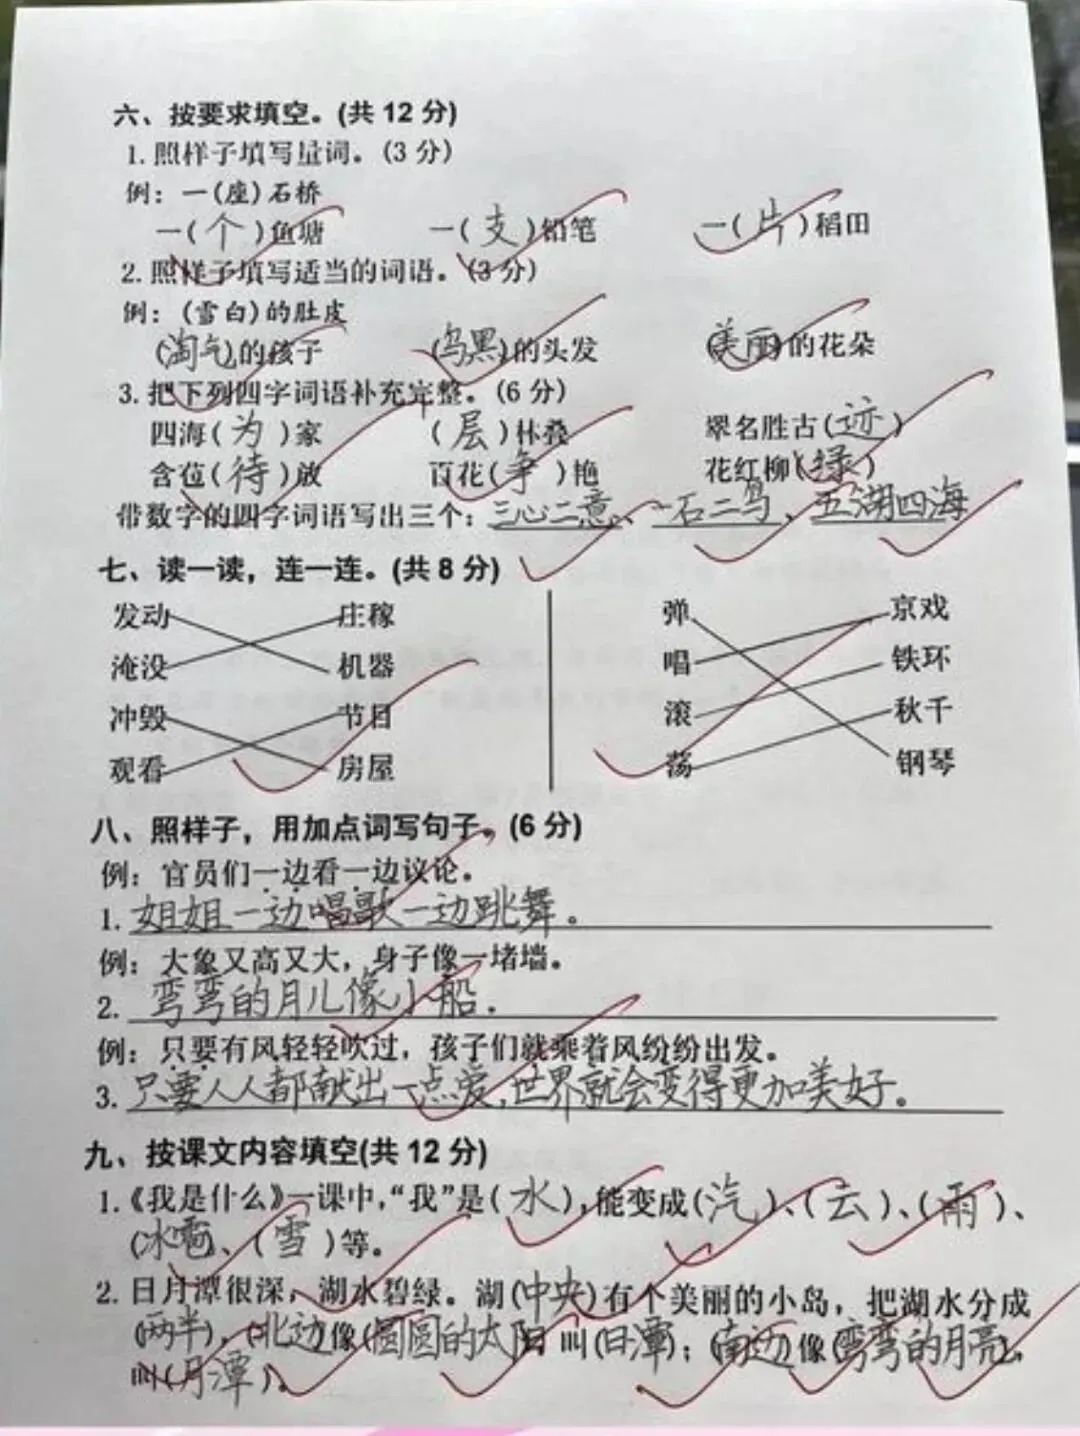 六、按要求填空。(共 12 分)
1. 照样子填写量词。(3 分)
例：一(座)石桥
一(个)鱼塘 一(支)铅笔 一(片)稻田
2. 照样子填写适当的词语。(3 分)
例：(雪白)的肚皮
(淘气)的孩子 (乌黑)的头发 (美丽)的花朵
3. 把下列四字词语补充完整。(6 分)
四海(为)家 (层)林叠 翠名胜古(迹)
含苞(待)放 百花(争)艳 花红柳(绿)
带数字的四字词语写出三个：三心二意、一石二鸟、五湖四海
七、读一读，连一连。(共 8 分)
发动 庄稼 弹 京戏
淹没 机器 唱 铁环
冲毁 节目 滚 秋千
观看 房屋 荡 钢琴
八、照样子，用加点词写句子。(6 分)
例：官员们一边看一边议论。
1. 姐姐一边唱歌一边跳舞。
例：大象又高又大，身子像一堵墙。
2. 弯弯的月儿像小船.
例：只要有风轻轻吹过，孩子们就乘着风纷纷出发。
3. 只要人人都献出一点爱,世界就会变得更加美好。
九、按课文内容填空(共 12 分)
1.《我是什么》一课中,“我”是(水),能变成(汽)、(云)、(雨)、
(冰雹)、(雪)等。
2. 日月潭很深，湖水碧绿。湖(中央)有个美丽的小岛，把湖水分成
(两半)，(北边)像(圆圆的太阳 叫(日潭)；(南边)像(弯弯的月亮),
叫(月潭)。